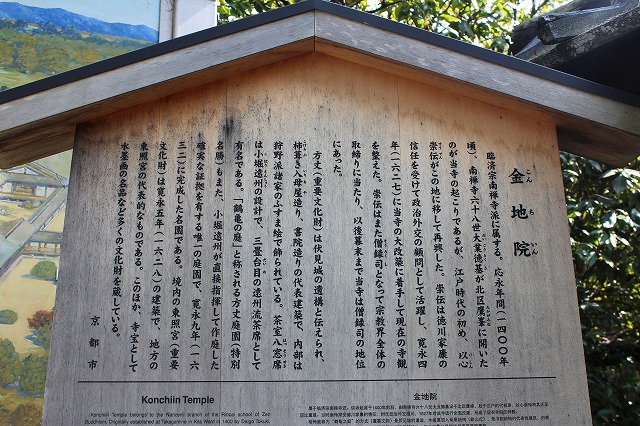 金地院
こんちいん
臨済宗南禅寺派に属する。応永年間（一四〇〇年
頃）、南禅寺六十八世大業徳基が北区鷹峯に開いた
のが当寺の起こりであるが、江戸時代の初め、以心
崇伝がこの地に移して再興した。崇伝は徳川家康の
信任を受けて政治外交の顧問として活躍し、寛永四
年（一六二七）に当寺の大改築に着手して現在の寺観
を整えた。崇伝はまた僧録司となって宗教界全体の
取締りに当たり、以後幕末まで当寺は僧録司の地位
にあった。
方丈（重要文化財）は伏見城の遺構と伝えられ、
杮葺き入母屋造り、書院造りの代表建築で、内部は
狩野派諸家のふすま絵で飾られている。茶室八窓席
は小堀遠州の設計で、三畳台目の遠州流茶席として
有名である。「鶴亀の庭」と称される方丈庭園（特別
名勝）もまた、小堀遠州が直接指揮して作庭した
確実な証拠を有する唯一の庭園で、寛永九年（一六
三二）に完成した名園である。境内の東照宮（重要
文化財）は寛永五年（一六二八）の建築で、地方の
東照宮の代表的なものである。このほか、寺宝として
水墨画の名品など多くの文化財を蔵している。
京都市
Konchiin Temple
Konchiin Temple belongs to the Nanzenji branch of the Rinzai school of Zen
Buddhism. Originally established at Takagamine in Kita Ward in 1400 by Daigo Tokuki,
金地院